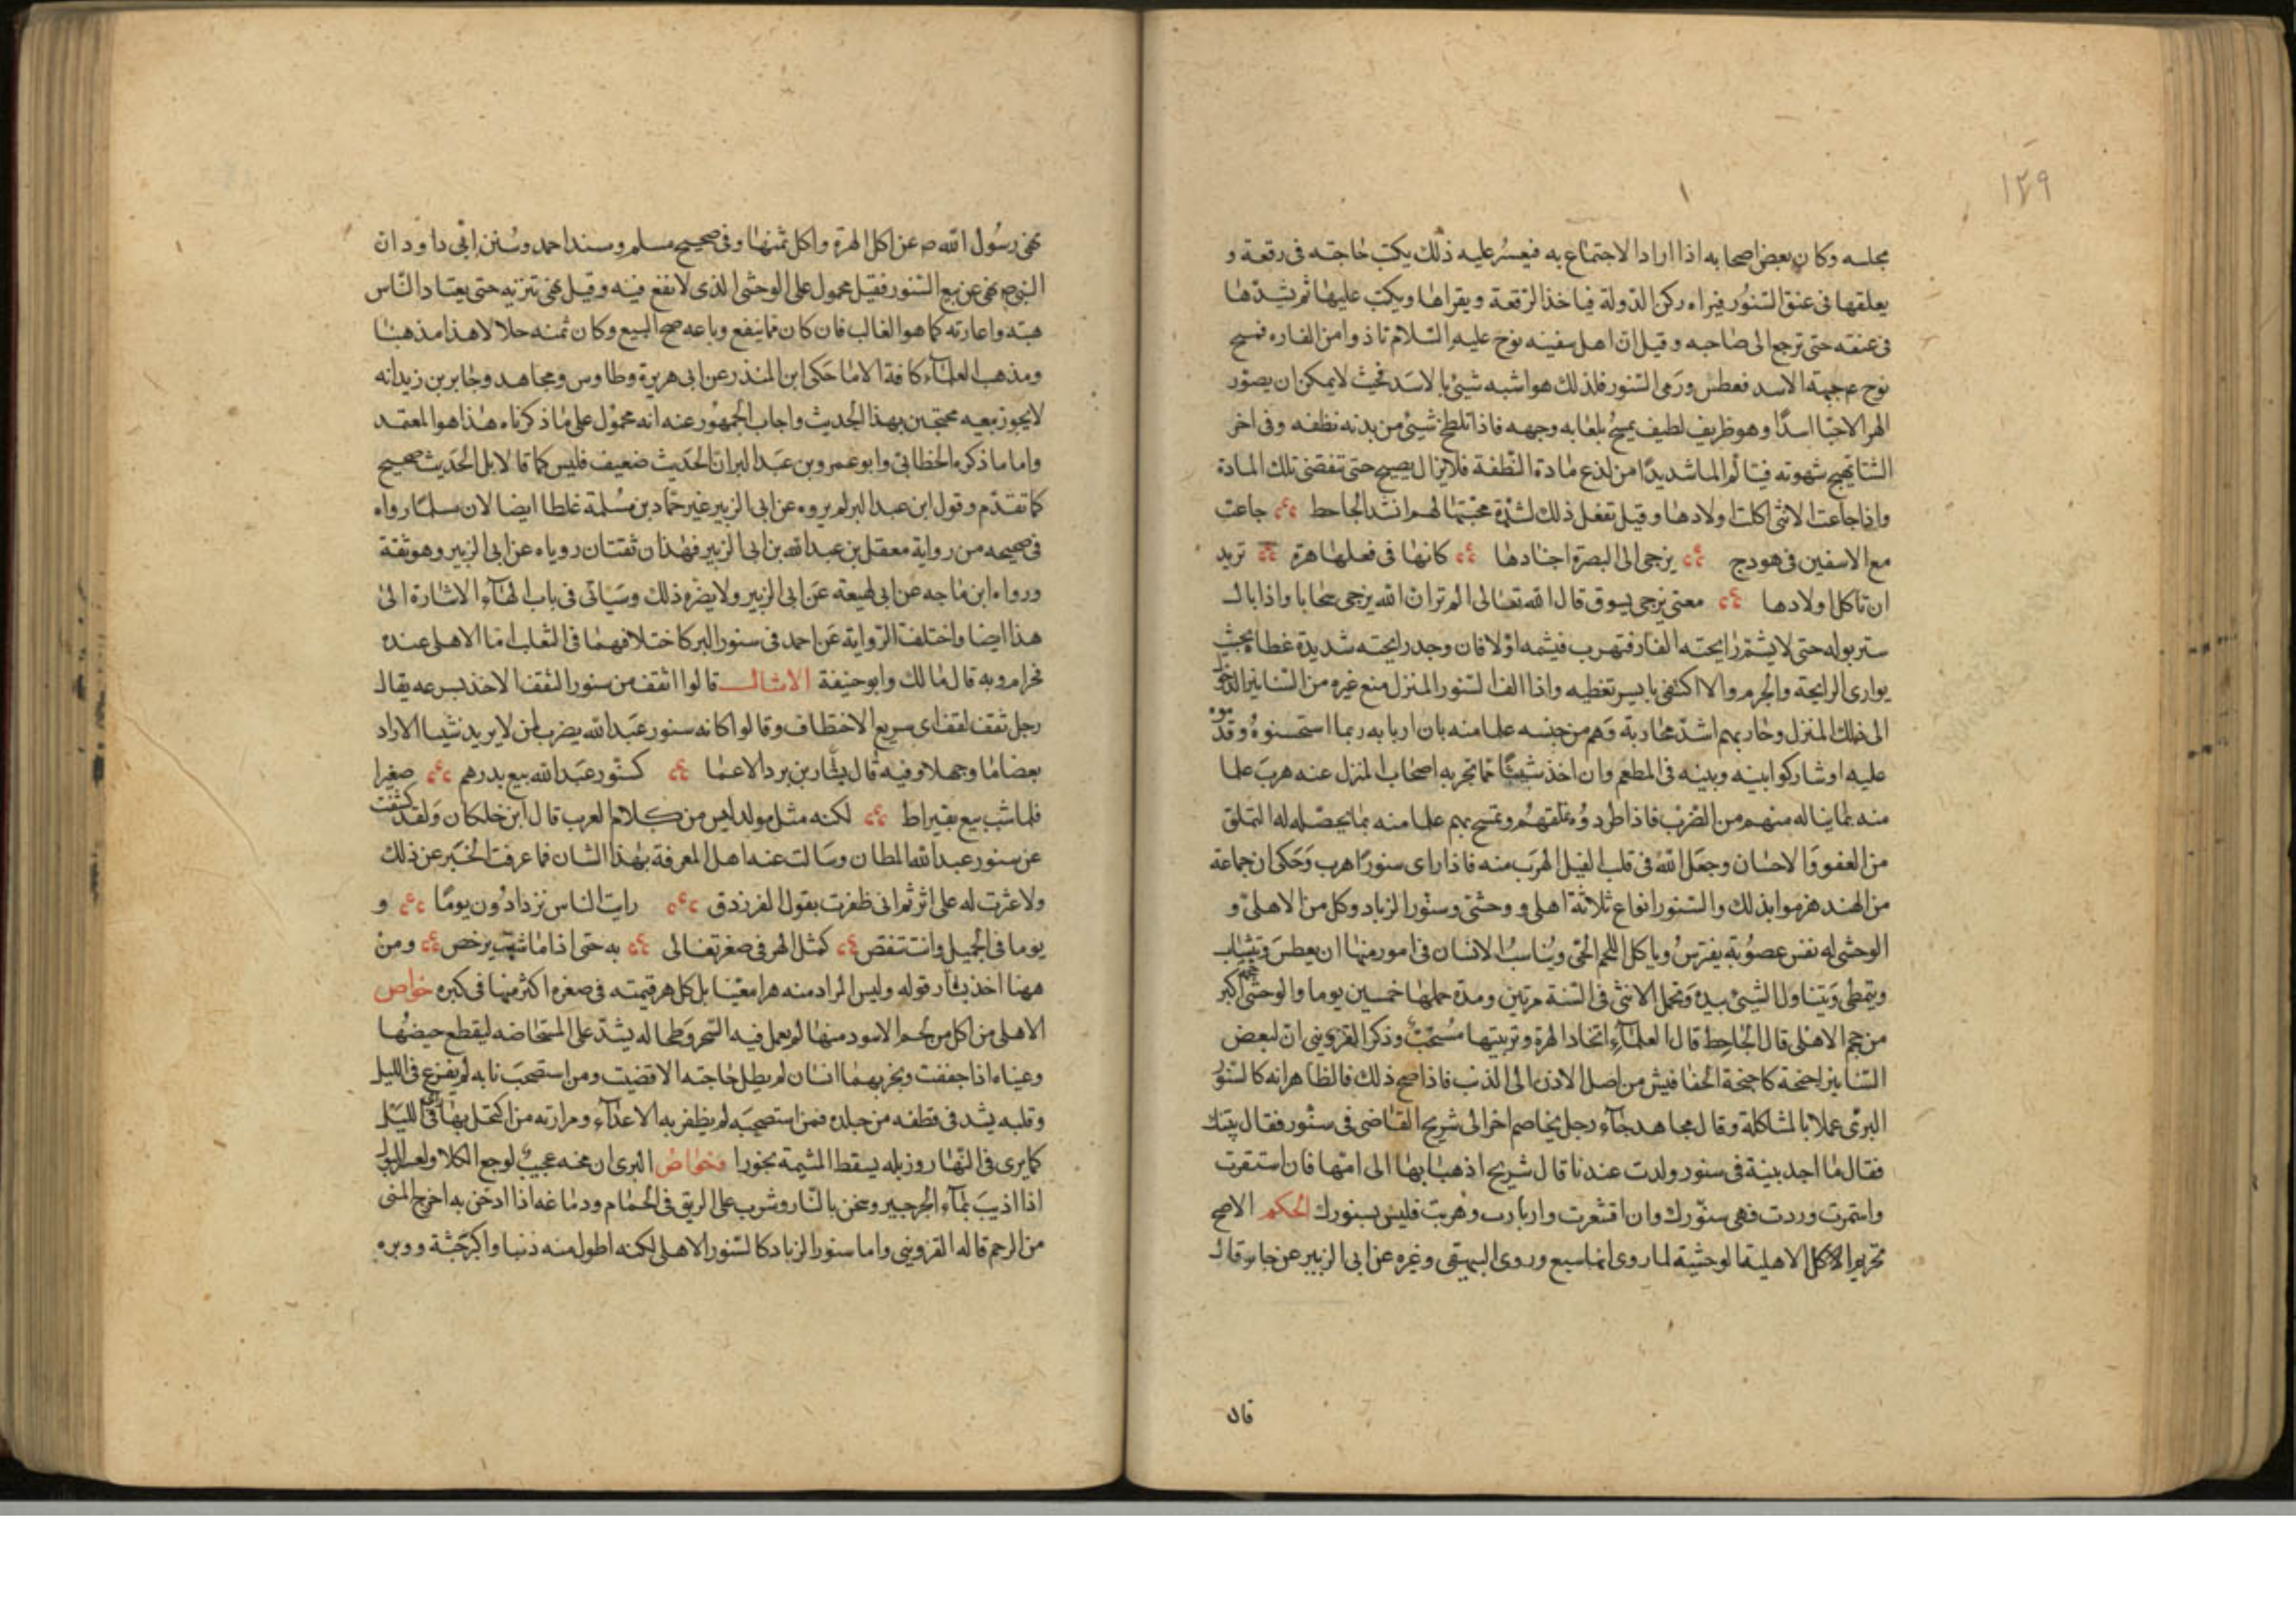 ١٢٩
مجلسه وكان بعض اصحابه اذا اراد الاجتماع به فيعسر عليه ذلك يكتب حاجته فى رقعة و
يعلقها فى عنق السنور فيراه ركن الدولة فياخذ الرقعة ويقراها ويكتب عليها ثم يشدها
فى عنقه حتى ترجع الى صاحبه وقيل ان اهل سفينه نوح عليه السلام تاذوا من الفاره فمسح
نوح ع جبهة الاسد فعطس ورمى السنور فلذلك هو اشبه شئ بالاسد بحيث لا يمكن ان يصور
الهر الا جا اسدًا وهو ظريف لطيف يمسح بلعابه وجهه فاذا تلطخ شئ من بدنه نظفه وفى اخر
الشتا يهيج شهوته فيتالم الما شديدًا من لذع مادة النطفة فلا يزال يصيح حتى تنقضى تلك المادة
واذا جاعت الانثى اكلت اولادها وقيل تفعل ذلك لشدة محبتها لهم انشد الجاحظ جاءت
مع الاسفين فى هودج يزجى الى البصرة اجنادها كانها فى فعلها هرة تريد
ان تاكل اولادها معنى يزجى يسوق قال الله تعالى الم تر ان الله يزجى سحابا واذا بال
ستر بوله حتى لا يشم رايحته الفار فتهرب فيشمه اولا فان وجد رايحته شديدة غطاه بحيث
يوارى الرايحة والجرم والا اكتفى بايسر تغطيه واذا الف السنور المنزل منع غيره من السنانير الدخول
الى ذلك المنزل وحاربهم اشد محاربة وهم من جنسه علما منه بان اربابه ربما استحسنوه وقدموه
عليه او شاركوا بينه وبينه فى المطعم وان اخذ شيئًا مما تجر به اصحاب المنزل عنه هرب علما
منه بما يناله منهم من الضرب فاذا طردوه تملقهم وتمسح بهم علما منه بما يحصله له التملق
من العفو والاحسان وجعل الله فى قلب الفيل الهرب منه فاذا راى سنورًا هرب وحكى ان جماعة
من الهند هزموا بذلك والسنور انواع ثلاثة اهلى ووحشى وسنور الزباد وكل من الاهلى و
الوحشى له نفس غضوبة يفترس وياكل اللحم الحى ويناسب الانسان فى امور منها ان يعطس ويتثاب
ويتمطى ويتناول الشئ بيده وتحمل الانثى فى السنة مرتين ومدة حملها خمسين يوما والوحشى حجمه اكبر
من حجم الاهلى قال الجاحظ قال العلماء اتخاذ الهرة وتربيتها مستحب وذكر القزوينى ان لبعض
السنانير اجنحة كاجنحة الخفافيش من اصل الاذن الى الذنب فاذا صح ذلك فالظاهر انه كالسنور
البرى عملا بالمشاكلة وقال مجاهد جاء رجل يخاصم اخر الى شريح القاضى فى سنور فقال بينتك
فقال ما اجد بينة فى سنور ولدت عندنا قال شريح اذهبا بها الى امها فان استقرت
واستمرت ودرت فهى سنورك وان اقشعرت واربارت وهربت فليس بسنورك الحكم الاصح
تحريم اكل الاهلية الوحشية لما روى انها سبع وروى البيهقى وغيره عن ابى الزبير عن جابر قال
قال
نهى رسول الله ص عن اكل الهرة واكل ثمنها وفى صحيح مسلم ومسند احمد وسنن ابى داود ان
النبى ص نهى عن بيع السنور فقيل محمول على الوحشى الذى لا نفع فيه وقيل نهى تنزيه حتى يعتاد الناس
هبته واعارته كما هو الغالب فان كان مما ينفع وباعه صح البيع وكان ثمنه حلالا هذا مذهبنا
ومذهب العلماء كافة الا ما حكى ابن المنذر عن ابى هريرة وطاوس ومجاهد وجابر بن زيد انه
لا يجوز بيعه محتجين بهذا الحديث واجاب الجمهور عنه انه محمول على ما ذكرناه هذا هو المعتمد
واما ما ذكره الخطابى وابو عمرو بن عبد البر ان الحديث ضعيف فليس كما قالا بل الحديث صحيح
كما تقدم وقول ابن عبد البر لم يروه عن ابى الزبير غير حماد بن سلمة غلط ايضا لان مسلما رواه
فى صحيحه من رواية معقل بن عبد الله بن ابى الزبير فهذان ثقتان روياه عن ابى الزبير وهو ثقة
ورواه ابن ماجه عن ابى لهيعة عن ابى الزبير ولا يضره ذلك وسياتى فى باب الهاء الاشارة الى
هذا ايضا واختلفت الرواية عن احمد فى سنور البر كاختلافهما فى الثعلب اما الاهلى عنده
فحرام وبه قال مالك وابو حنيفة الامثال قالوا اثقف من سنور الثقف الاخذ بسرعه يقال
رجل ثقف لقف اى سريع الاختطاف وقالوا كانه سنور عبد الله يضرب لمن لا يريد شيا الا زاد
بعضا ما وجهلا وفيه قال بشار بن برد الاعما كسنور عبد الله بيع بدرهم صغيرا
فلما شب بيع بقيراط لكنه مثل مولد ليس من كلام العرب قال ابن خلكان ولقد كشفت
عن سنور عبد الله المظان وسالت عنه اهل المعرفة بهذا الشان فما عرفت الخبر عن ذلك
ولا عثرت له على اثر ثم انى ظفرت بقول الفرزدق رايت الناس نزدادون يومًا و
يوما فى الجميل وانت تنقص كمثل الهر فى صغر تغالى به حتى اذا ما شب يرخص ومن
ههنا اخذ بشار قوله وليس المراد منه هرا معينا بل كل هر قيمته فى صغره اكثر منها فى كبره خواص
الاهلى من اكل من لحم الاسود منها لم يعمل فيه السحر وطحاله يشد على المستحاضه ليقطع حيضها
وعيناه اذا جففت وبخر بهما انسان لم يطل حاجته الا قضيت ومن استصحب نابه لم يفزع فى الليل
وقلبه يشد فى قطفه من جلده فمن استصحبه لم يظفر به الاعداء ومرارته من اكتحل بها راى فى الليل
كما يرى فى النهار وزبله يسقط المشيمة بخورا وخواص البرى ان مخه عجيب لوجع الكلا ولعسر البول
اذا اذيب بماء الجرجير وسخن بالنار وشرب على الريق فى الحمام ودماغه اذا ادخن به اخرج المنى
من الرحم قاله القزوينى واما سنور الزباد كالسنور الاهلى لكنه اطول منه ذنبا واكبر جثة ووبره